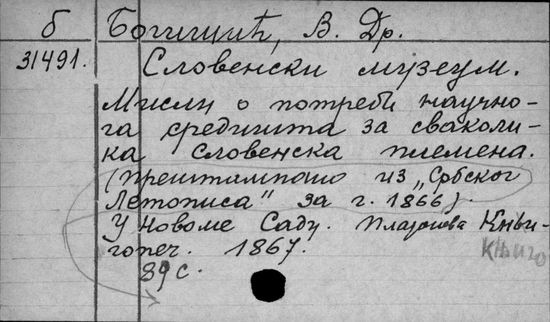 б Богишић, В. Др.
31491. Словенски музеум.
Мисли о потреби научно-
га средишта за сваколи-
ка словенска племена.
(прештампано из „Србског
Летописа" за г. 1866).
У Новоме Саду. Платонова Књи-
гопеч. 1867. Књиго
89 с.